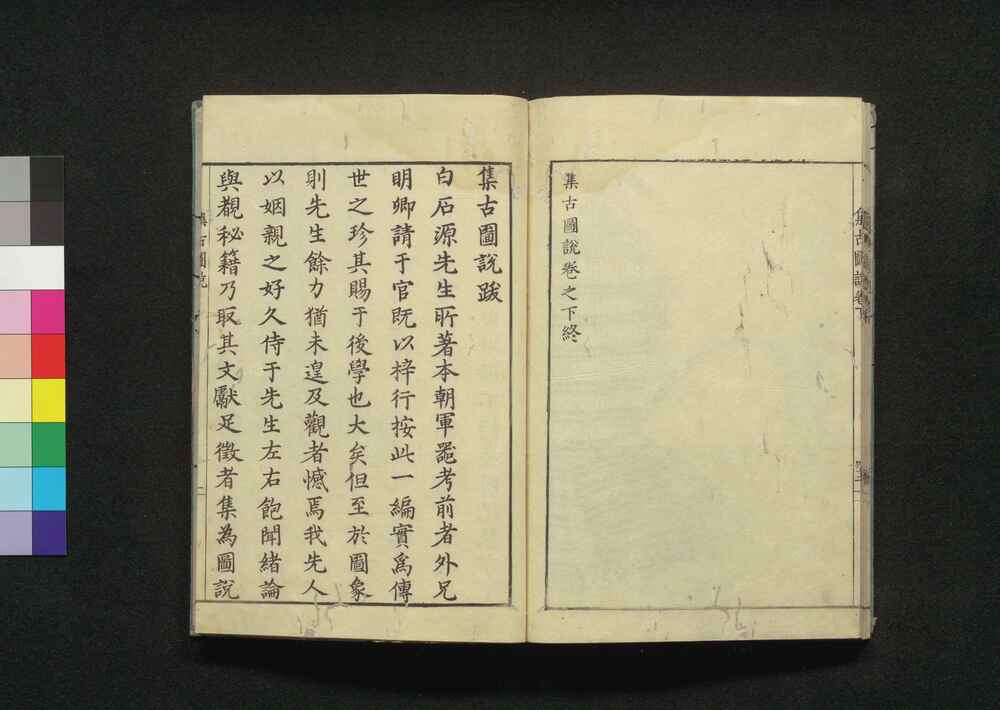 集古圖說卷之下終
集古圖說卷下
集古圖說跋
白石源先生所著本朝軍噐考前者外兄
明卿請于官既以梓行按此一編實爲傳
世之珍其賜于後學也大矣但至於圖象
則先生餘力猶未遑及觀者憾焉我先人
以姻親之好久侍于先生左右飽聞緒論
與覩秘籍乃取其文獻足徵者集為圖説
集古圖説